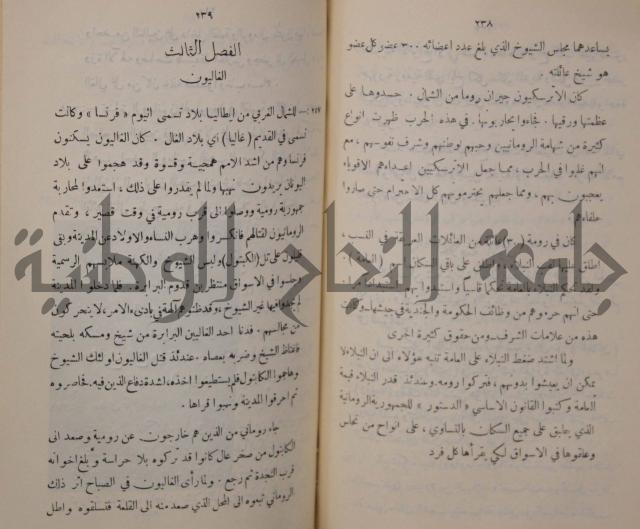 ٢٣٨
يساعدهما مجلس الشيوخ الذي بلغ عدد اعضائه ٣٠٠ عضو كل عضو
هو شيخ عائلته .
كان الاترسكيون جيران روما من الشمال . حسدوها على
عظمتها ورقيها . فجاءوا يحاربونها . في هذه الحرب ظهرت انواع
كثيرة من شهامة الرومانيين وحبهم لوطنهم وشرف نفوسهم ، مع
انهم غلبوا في الحرب ، مما جعل الاترسكيين اعداءهم الاقوياء
يعجبون بهم ، ومما جعلهم يحترمونهم كل الاحترام حتى صاروا
حلفاءهم
كان في رومة (٣٠٠) عائلة من العائلات العريقة في النسب ،
حتى انهم حرموهم من وظائف الحكومة والجندية في جيشها .
هذه من علامات الشرف . ومن حقوق كثيرة اخرى
ولما اشتد ضغط النبلاء على العامة تنبه هؤلاء الى ان النبلاء لا
يمكن ان يعيشوا بدونهم ، فتركوا رومه . وعندئذ قدر النبلاء قيمة
العامة وكتبوا القانون الاساسي «الدستور» للجمهورية الرومانية
الذي يطبق على جميع السكان بالتساوي ، على الواح من نحاس
وعلقوها في الاسواق لكي يقرأها كل فرد
٢٣٩
الفصل الثالث
الغاليون
٢٥٧ :— للشمال الغربي من ايطاليا بلاد تسمى اليوم «فرنسا» وكانت
تسمى في القديم (غاليا) أي بلاد الغال . كان الغاليون يسكنون
فرنسا وهم من اشد الامم همجية وقسوة وقد هجموا على بلاد
اليونان يريدون نهبها ولما لم يقدروا على ذلك ، استعدوا لمحاربة
جمهورية رومية ووصلوا الى قرب رومية في وقت قصير ، وتقدم
الرومانيون لقتالهم فانكسروا وهرب النساء والاولاد عن المدينة وبقي
قليلون على تل (الكبتول) ولبس الشيوخ والكهنة ملابسهم الرسمية
وجلسوا في الاسواق منتظرين قدوم البرابرة . فلما دخلوا المدينة
لم يجدوا فيها غير الشيوخ ، وقد ظنوهم آلهة في بادىء الامر ، لا يتحركون
من مجالسهم . فدنا احد الغاليين البرابرة من شيخ ومسكه بلحيته
فاغتاظ الشيخ وضربه بعصاه ، عندئذ قتل الغاليون اولئك الشيوخ
وهاجموا الكابتول فلم يستطيعوا اخذه ، لشدة دفاع الذين فيه . فحاصروه
ثم احرقوا المدينة ونهبوا قراها .
جاء روماني من الذين هم خارجون عن رومية وصعد الى
الكابتول من صخر عال كانوا قد تركوه بلا حراسة وبلغ اخوانه
قرب النجدة ثم رجع . ولما رأى الغاليون في الصباح اثر ذلك
الروماني تبعوه الى المحل الذي صعد منه الى القلعة فتسلقوه واطل
جامعة النجاح الوطنية